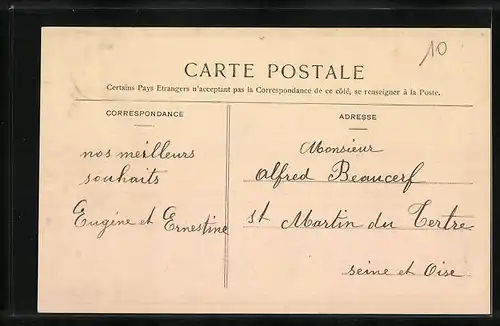 10
CARTE POSTALE
Certains Pays Etrangers n'acceptant pas la Correspondance de ce côté, se renseigner à la Poste.
CORRESPONDANCE
nos meilleurs
souhaits
Eugène et Ernestine
ADRESSE
Monsieur
Alfred Beaucerf
St Martin du Tertre
Seine et Oise